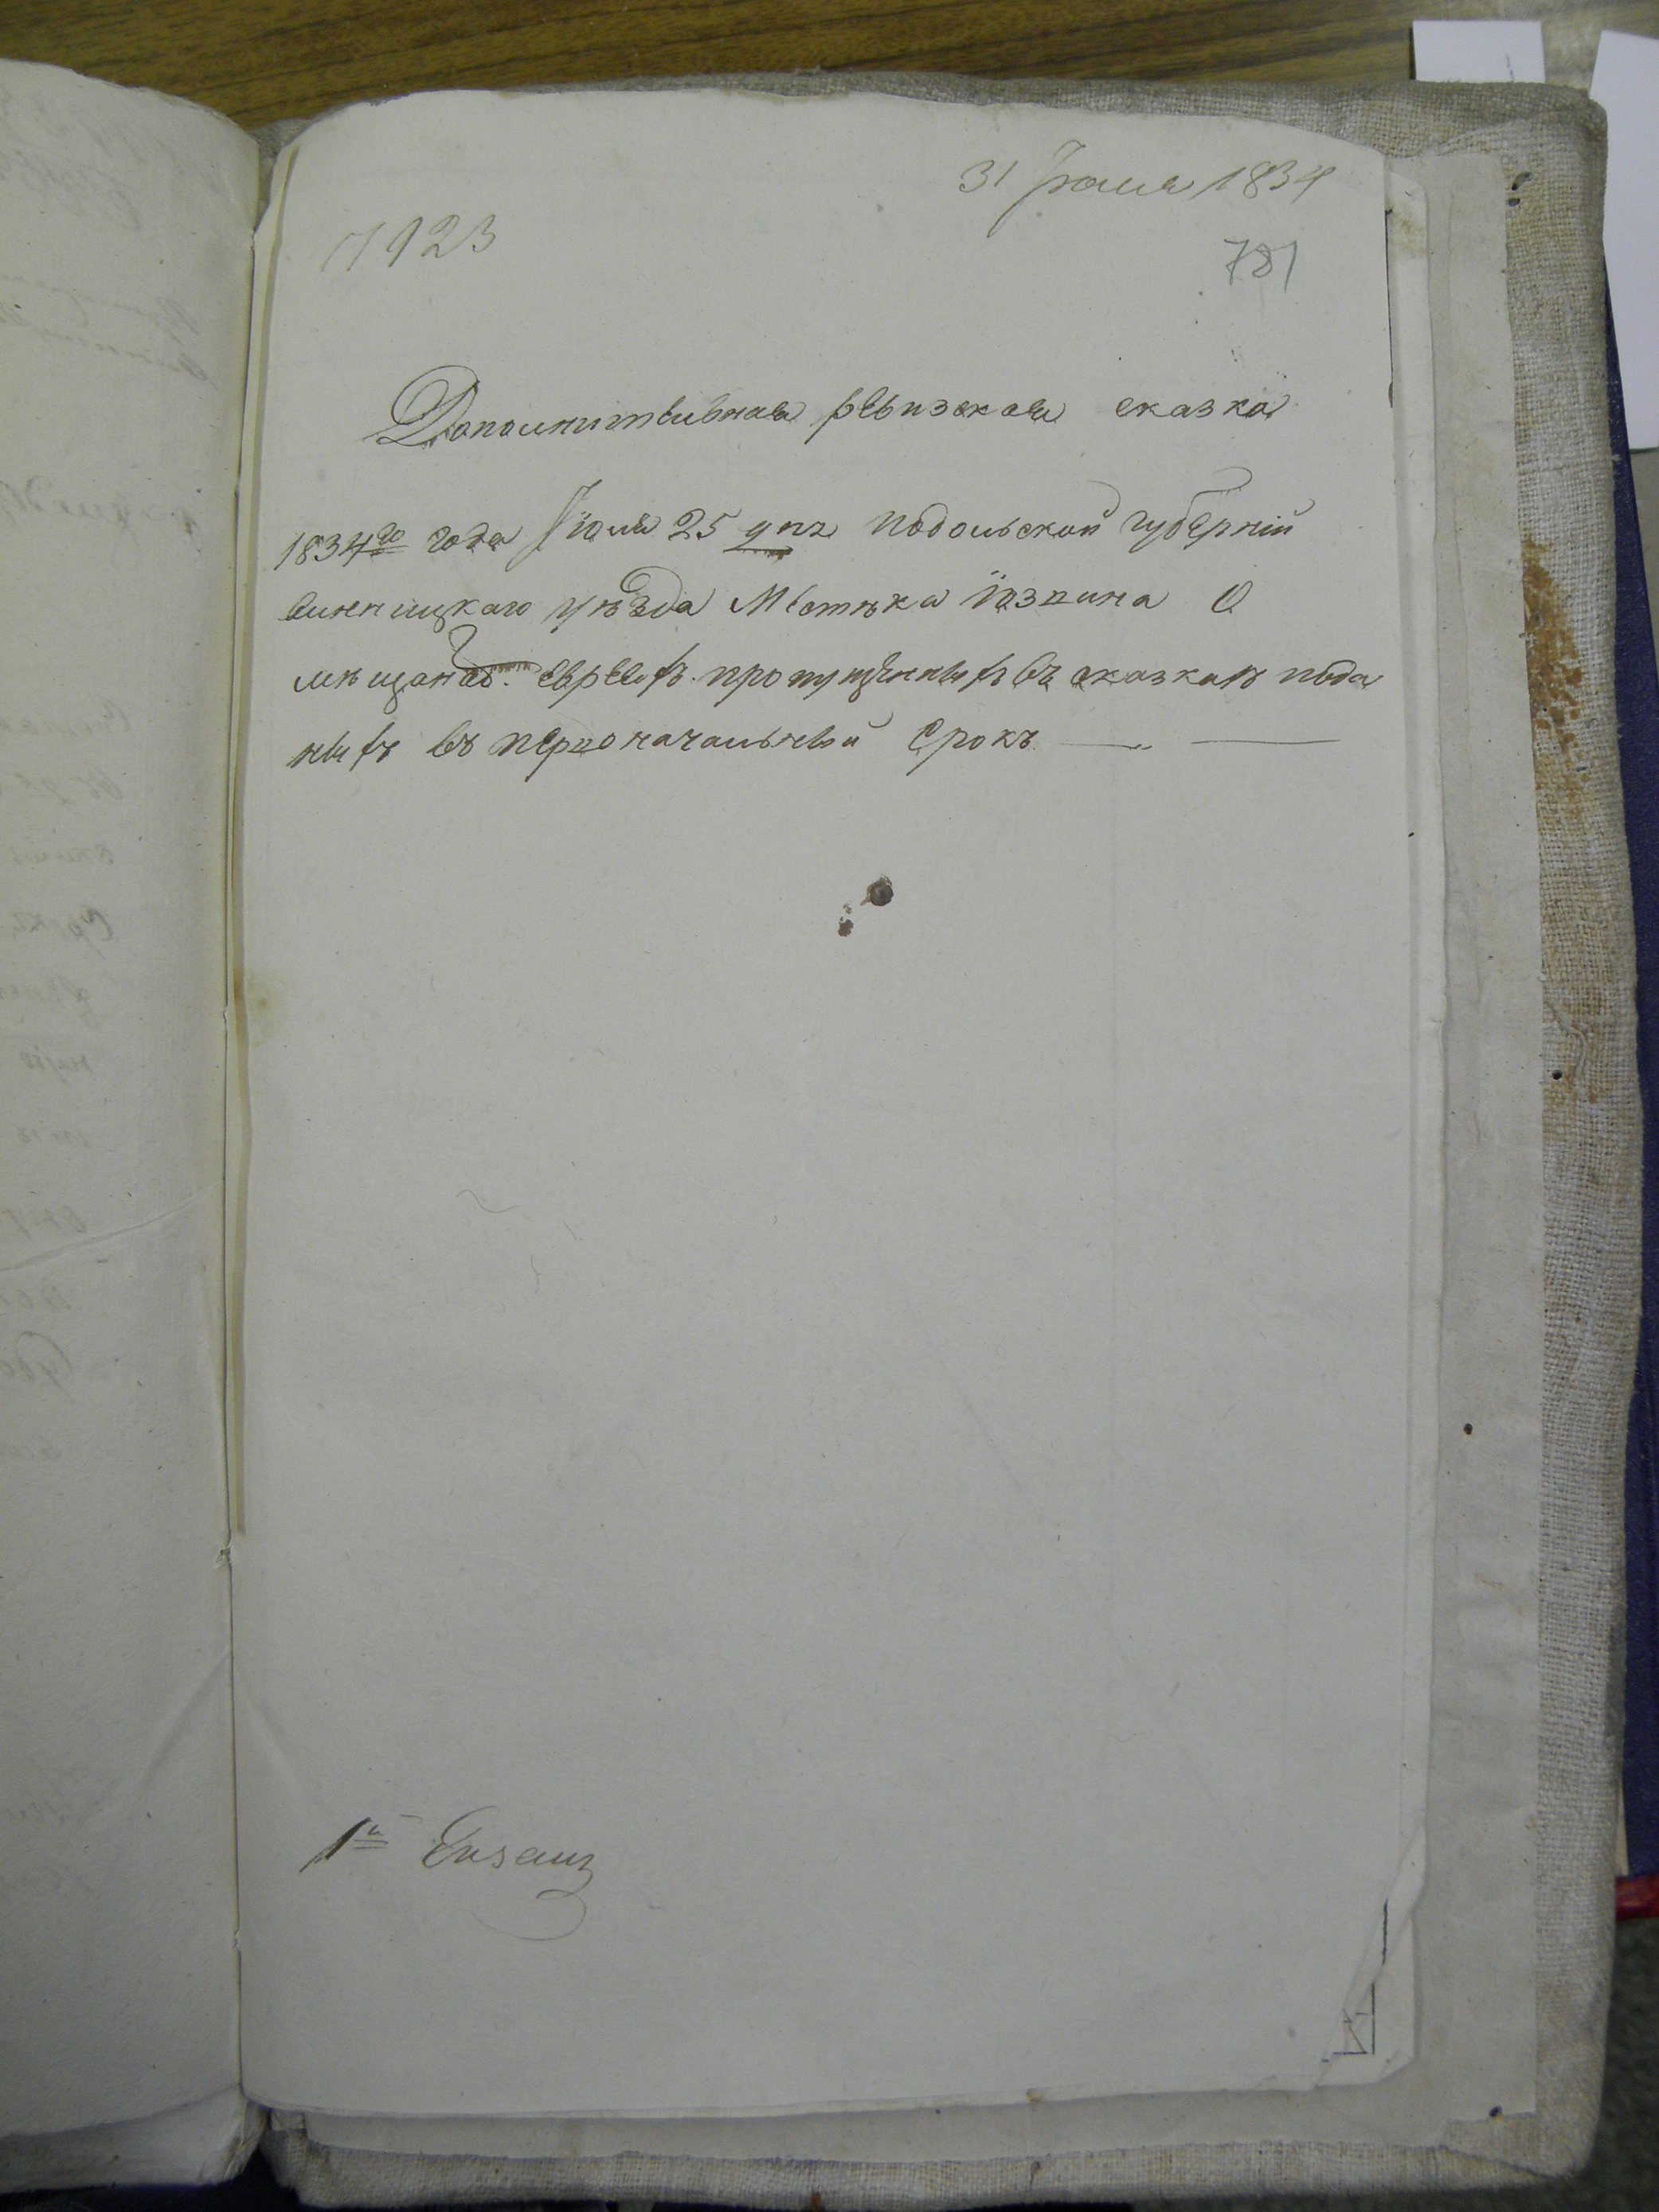 31 Іюля 1834
1123
781
Дополнительная ревизская сказка
1834го года Іюля 25 дня Подольской губерніи
винницкаго уѣзда Мѣстѣка Yозвина О
мѣщанах. евреехъ пропущенныхъ въ сказкахъ пода
ныхъ въ первоначальный срокъ
1й Екземп